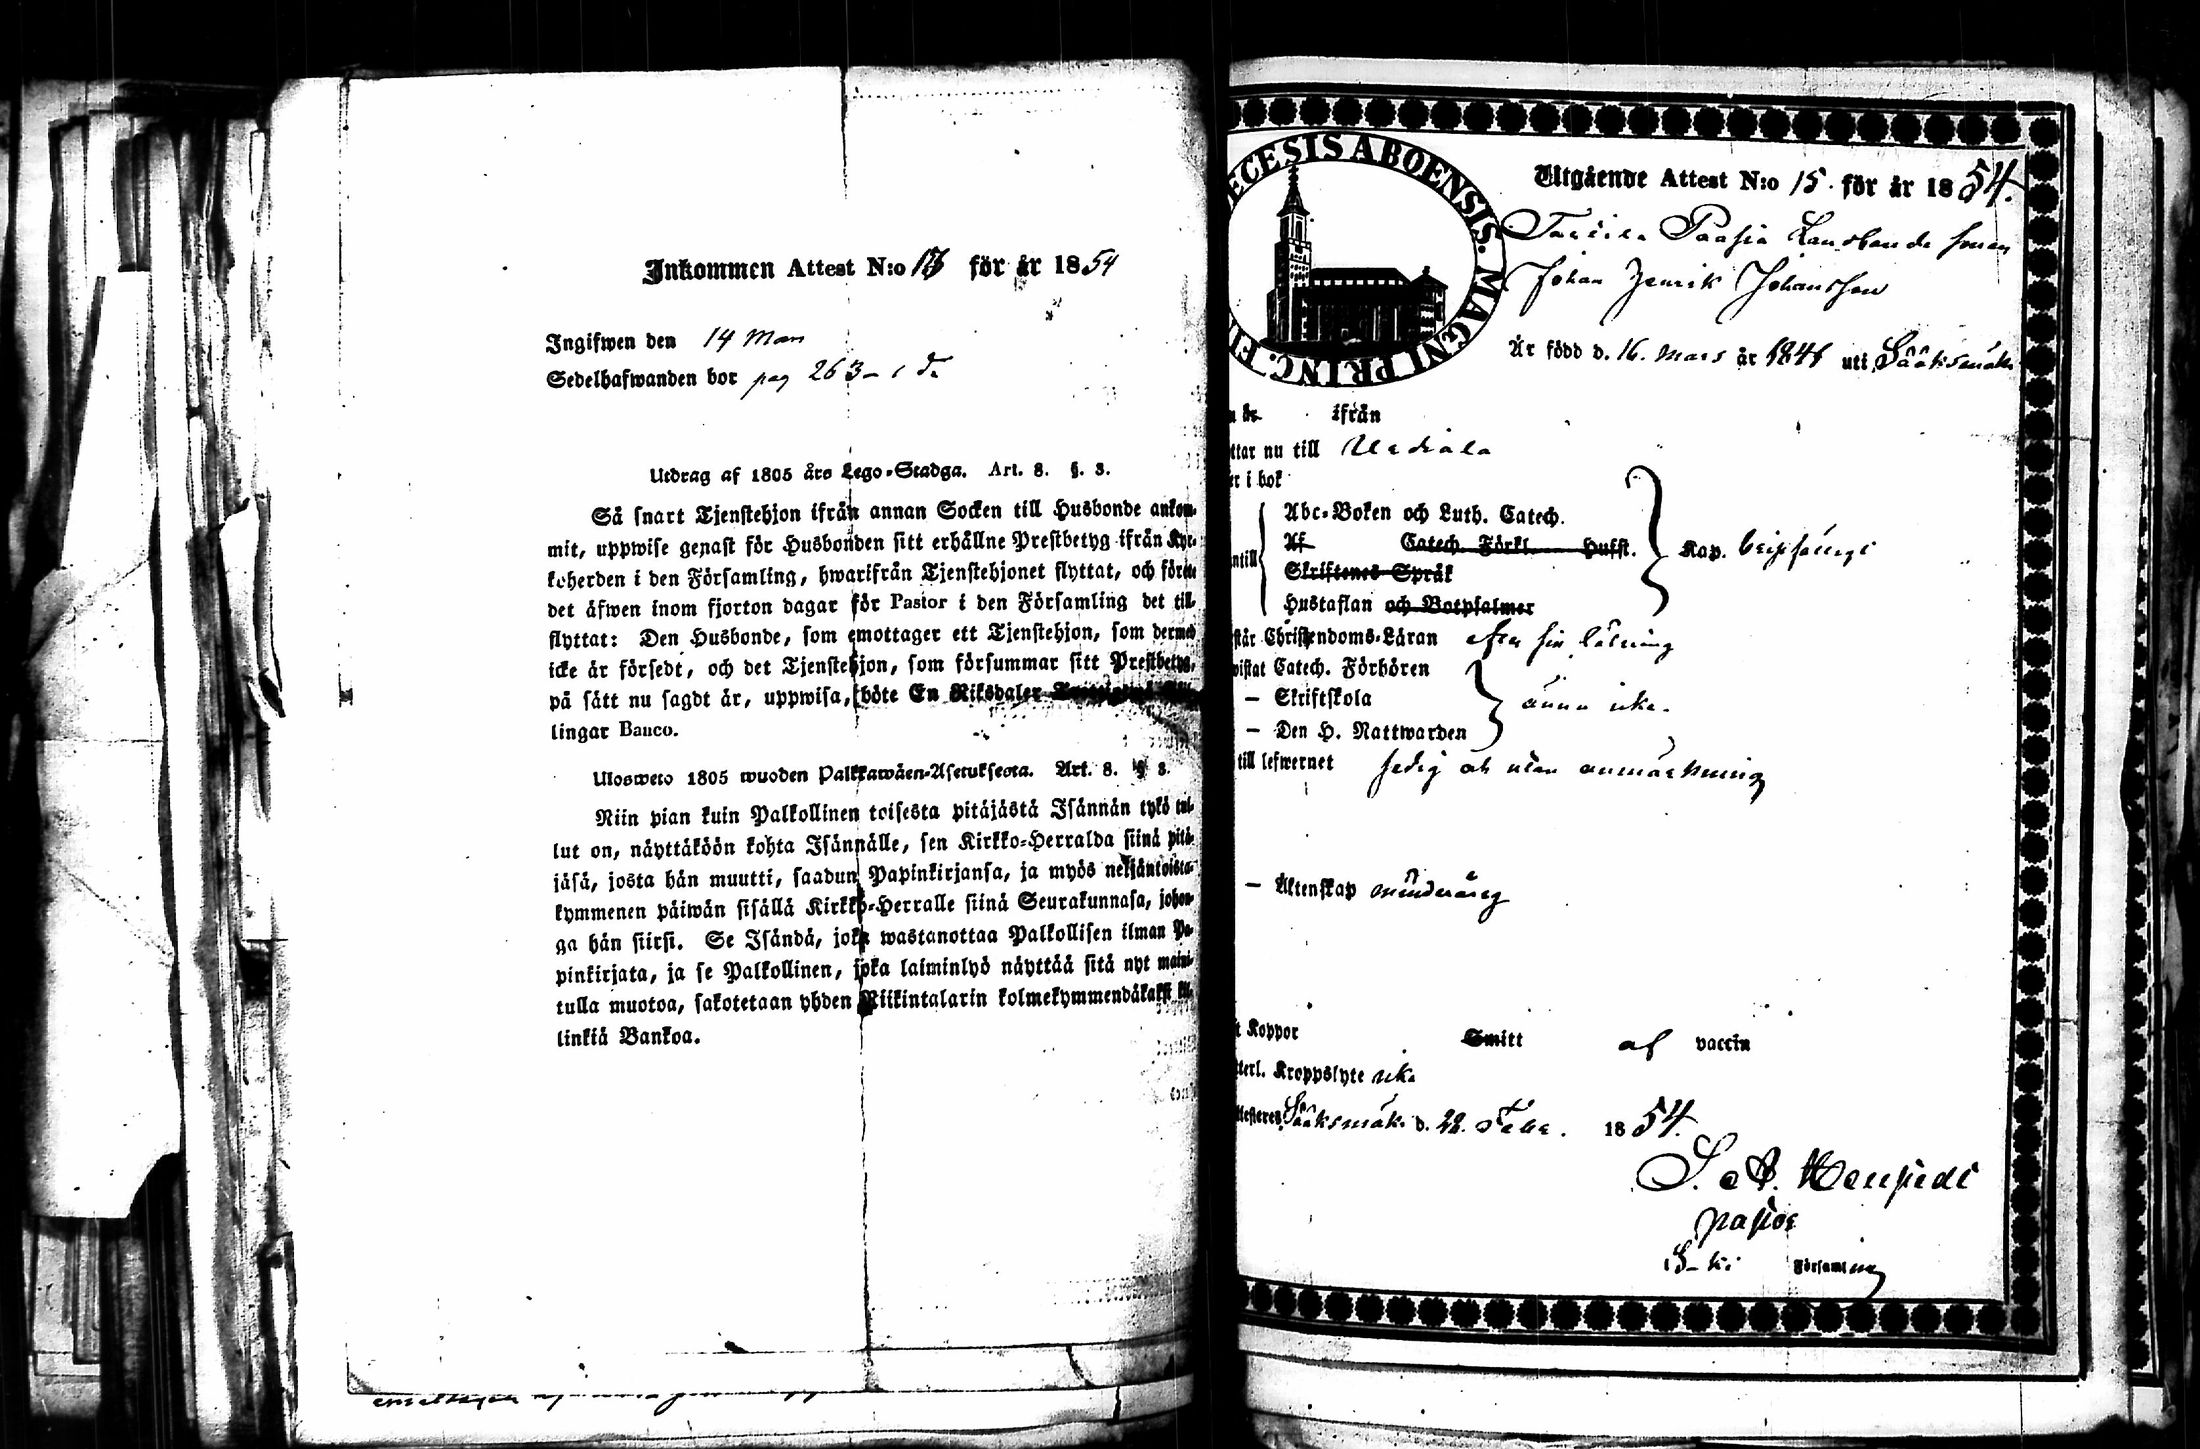 Inkommen Attest N:o för år 1854
Ingifwen den 14 Mars
Sedelhafwanden bor pag 263
Utdrag af 1805 års Lego-Stadga. Art. 8. §. 3.
Så snart Tjenstehjon ifrån annan Socken till Husbonde ankom-
mit, uppwise genast för Husbonden sitt erhållne Prestbetyg ifrån Kyr-
koherden i den Församling, hwarifrån Tjenstehjonet flyttat, och förete
det äfwen inom fjorton dagar för Pastor i den Församling det till-
flyttat: Den Husbonde, som emottager ett Tjenstehjon, som dermed
icke är försedt, och det Tjenstehjon, som försummar sitt Prestbetyg,
på sätt nu sagdt är, uppwisa, böte En Riksdaler
lingar Banco.
Ulosweto 1805 wuoden Palkkawäen-Asetuksesta. Art. 8. § 3.
Niin pian kuin Palkollinen toisesta pitäjästä Isännän tykö tul-
lut on, näyttäköön kohta Isännälle, sen Kirkko-Herralda siinä pitä-
jäsä, josta hän muutti, saadun Papinkirjansa, ja myös neljäntoista-
kymmenen päiwän sisällä Kirkko-Herralle siinä Seurakunnasa, johon-
ga hän siirsi. Se Isändä, joka wastanottaa Palkollisen ilman Pa-
pinkirjata, ja se Palkollinen, joka laiminlyö näyttää sitä nyt maini-
tulla muotoa, sakotetaan yhden Riikintalarin kolmekymmendäkaksi kil-
linkiä Bankoa.
ECESIS ABOENSIS. MAGNI PRINC. FI
Utgående Attest N:o 15. för år 1854.
Paasia Landbonde sonen
Johan Henrik Johansson
Är född d. 16. Mars år 1841 uti Sääksmäki
ifrån
ttar nu till Urdiala
r i bok
Abc-Boken och Luth. Catech.
Af Catech. Förkl. Hufst. Kap.
ntill
Skriftenes Språk
Hustaflan och Botpsalmer
står Christendoms-Läran efter sin läsning
wistat Catech. Förhören
— Skriftskola ännu icke.
— Den H. Nattwarden
till lefwernet sedig och utan anmärkning
— Äktenskap minderårig
t Koppor Smitt af vaccin
tterl. Kroppslyte icke
ttesteres Sääksmäki d. 22. Febr. 1854.
S. A.
pastor
i S-ki Församling